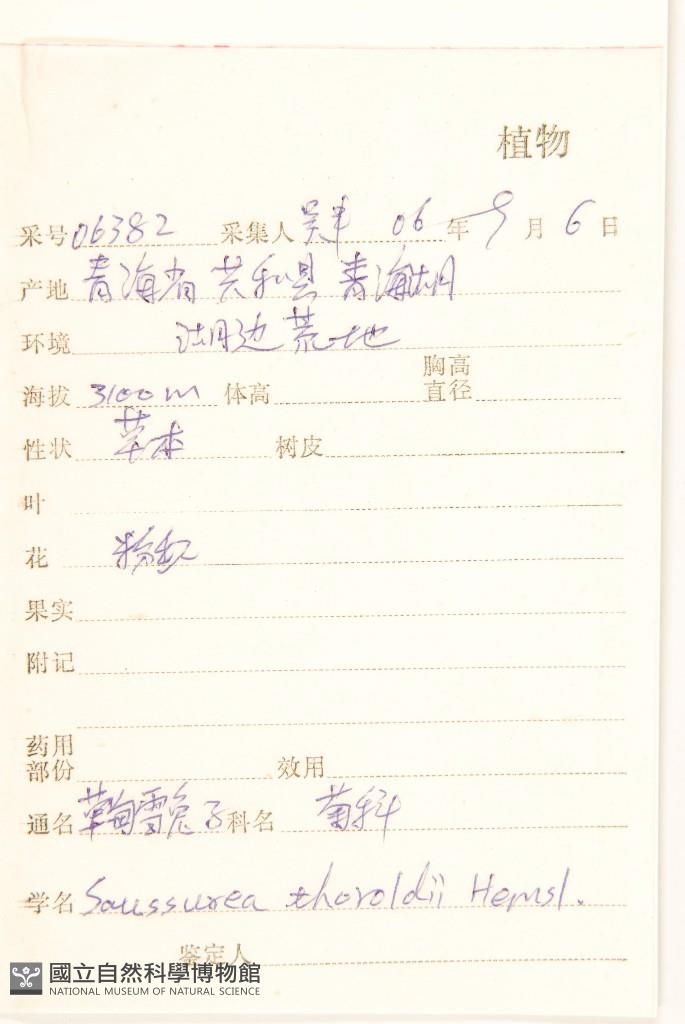 植物
采号 06382 采集人 吴丰 06年 9月 6日
产地 青海省 共和县 青海湖
环境 湖边荒地
海拔 3100m 体高 胸高直径
性状 草本 树皮
叶
花 粉红
果实
附记
药用部份 效用
通名 草甸雪兔子 科名 菊科
学名 Saussurea thoroldii Hemsl.
鉴定人
國立自然科學博物館
NATIONAL MUSEUM OF NATURAL SCIENCE